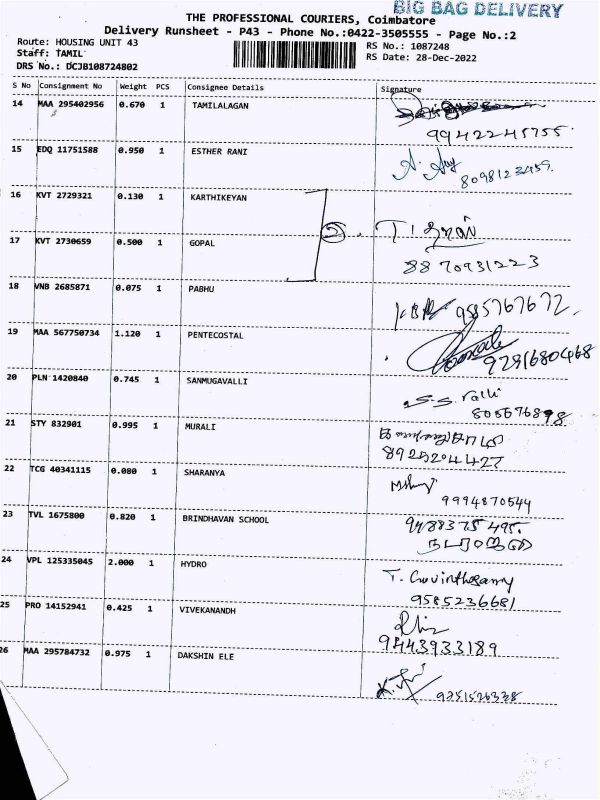 BIG BAG DELIVERY
THE PROFESSIONAL COURIERS, Coimbatore
Delivery Runsheet - P43 - Phone No.:0422-3505555 - Page No.:2
Route: HOUSING UNIT 43 RS No.: 1087248
Staff: TAMIL RS Date: 28-Dec-2022
DRS No.: DCJB108724802
S No Consignment No Weight PCS Consignee Details Signature
14 MAA 295402956 0.670 1 TAMILALAGAN
9942245755
15 EDQ 11751588 0.950 1 ESTHER RANI
8098123459
16 KVT 2729321 0.130 1 KARTHIKEYAN
2
17 KVT 2730659 0.500 1 GOPAL
8870931223
18 VNB 2685871 0.075 1 PABHU 9585767672
19 MAA 567750734 1.120 1 PENTECOSTAL
9291680468
20 PLN 1420840 0.745 1 SANMUGAVALLI
S.S. Valli
21 STY 832901 0.995 1 MURALI
8925204427
22 TCG 40341115 0.080 1 SHARANYA
9994870544
23 TVL 1675800 0.820 1 BRINDHAVAN SCHOOL
9488375495
24 VPL 125335045 2.000 1 HYDRO
T. Govinthasamy
9585236681
25 PRO 14152941 0.425 1 VIVEKANANDH
9443933189
26 MAA 295784732 0.975 1 DAKSHIN ELE